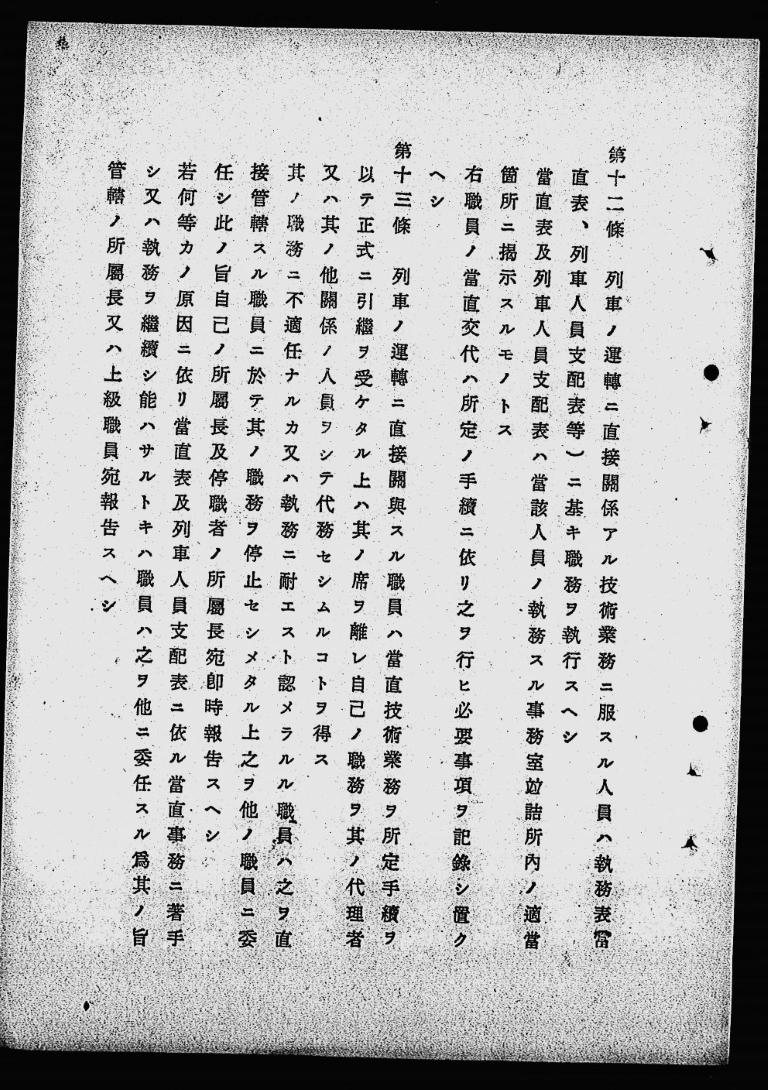 第十二條　列車ノ運轉ニ直接關係アル技術業務ニ服スル人員ハ執務表(當
直表、列車人員支配表等)ニ基キ職務ヲ執行スヘシ
當直表及列車人員支配表ハ當該人員ノ執務スル事務室竝詰所內ノ適當
箇所ニ揭示スルモノトス
右職員ノ當直交代ハ所定ノ手續ニ依リ之ヲ行ヒ必要事項ヲ記錄シ置ク
ヘシ
第十三條　列車ノ運轉ニ直接關與スル職員ハ當直技術業務ヲ所定手續ヲ
以テ正式ニ引繼ヲ受ケタル上ハ其ノ席ヲ離レ自己ノ職務ヲ其ノ代理者
又ハ其ノ他關係ノ人員ヲシテ代務セシムルコトヲ得ス
其ノ職務ニ不適任ナルカ又ハ執務ニ耐エスト認メラルル職員ハ之ヲ直
接管轄スル職員ニ於テ其ノ職務ヲ停止セシメタル上之ヲ他ノ職員ニ委
任シ此ノ旨自己ノ所屬長及停職者ノ所屬長宛卽時報吿スヘシ
若何等カノ原因ニ依リ當直表及列車人員支配表ニ依ル當直事務ニ著手
シ又ハ執務ヲ繼續シ能ハサルトキハ職員ハ之ヲ他ニ委任スル爲其ノ旨
管轄ノ所屬長又ハ上級職員宛報吿スヘシ